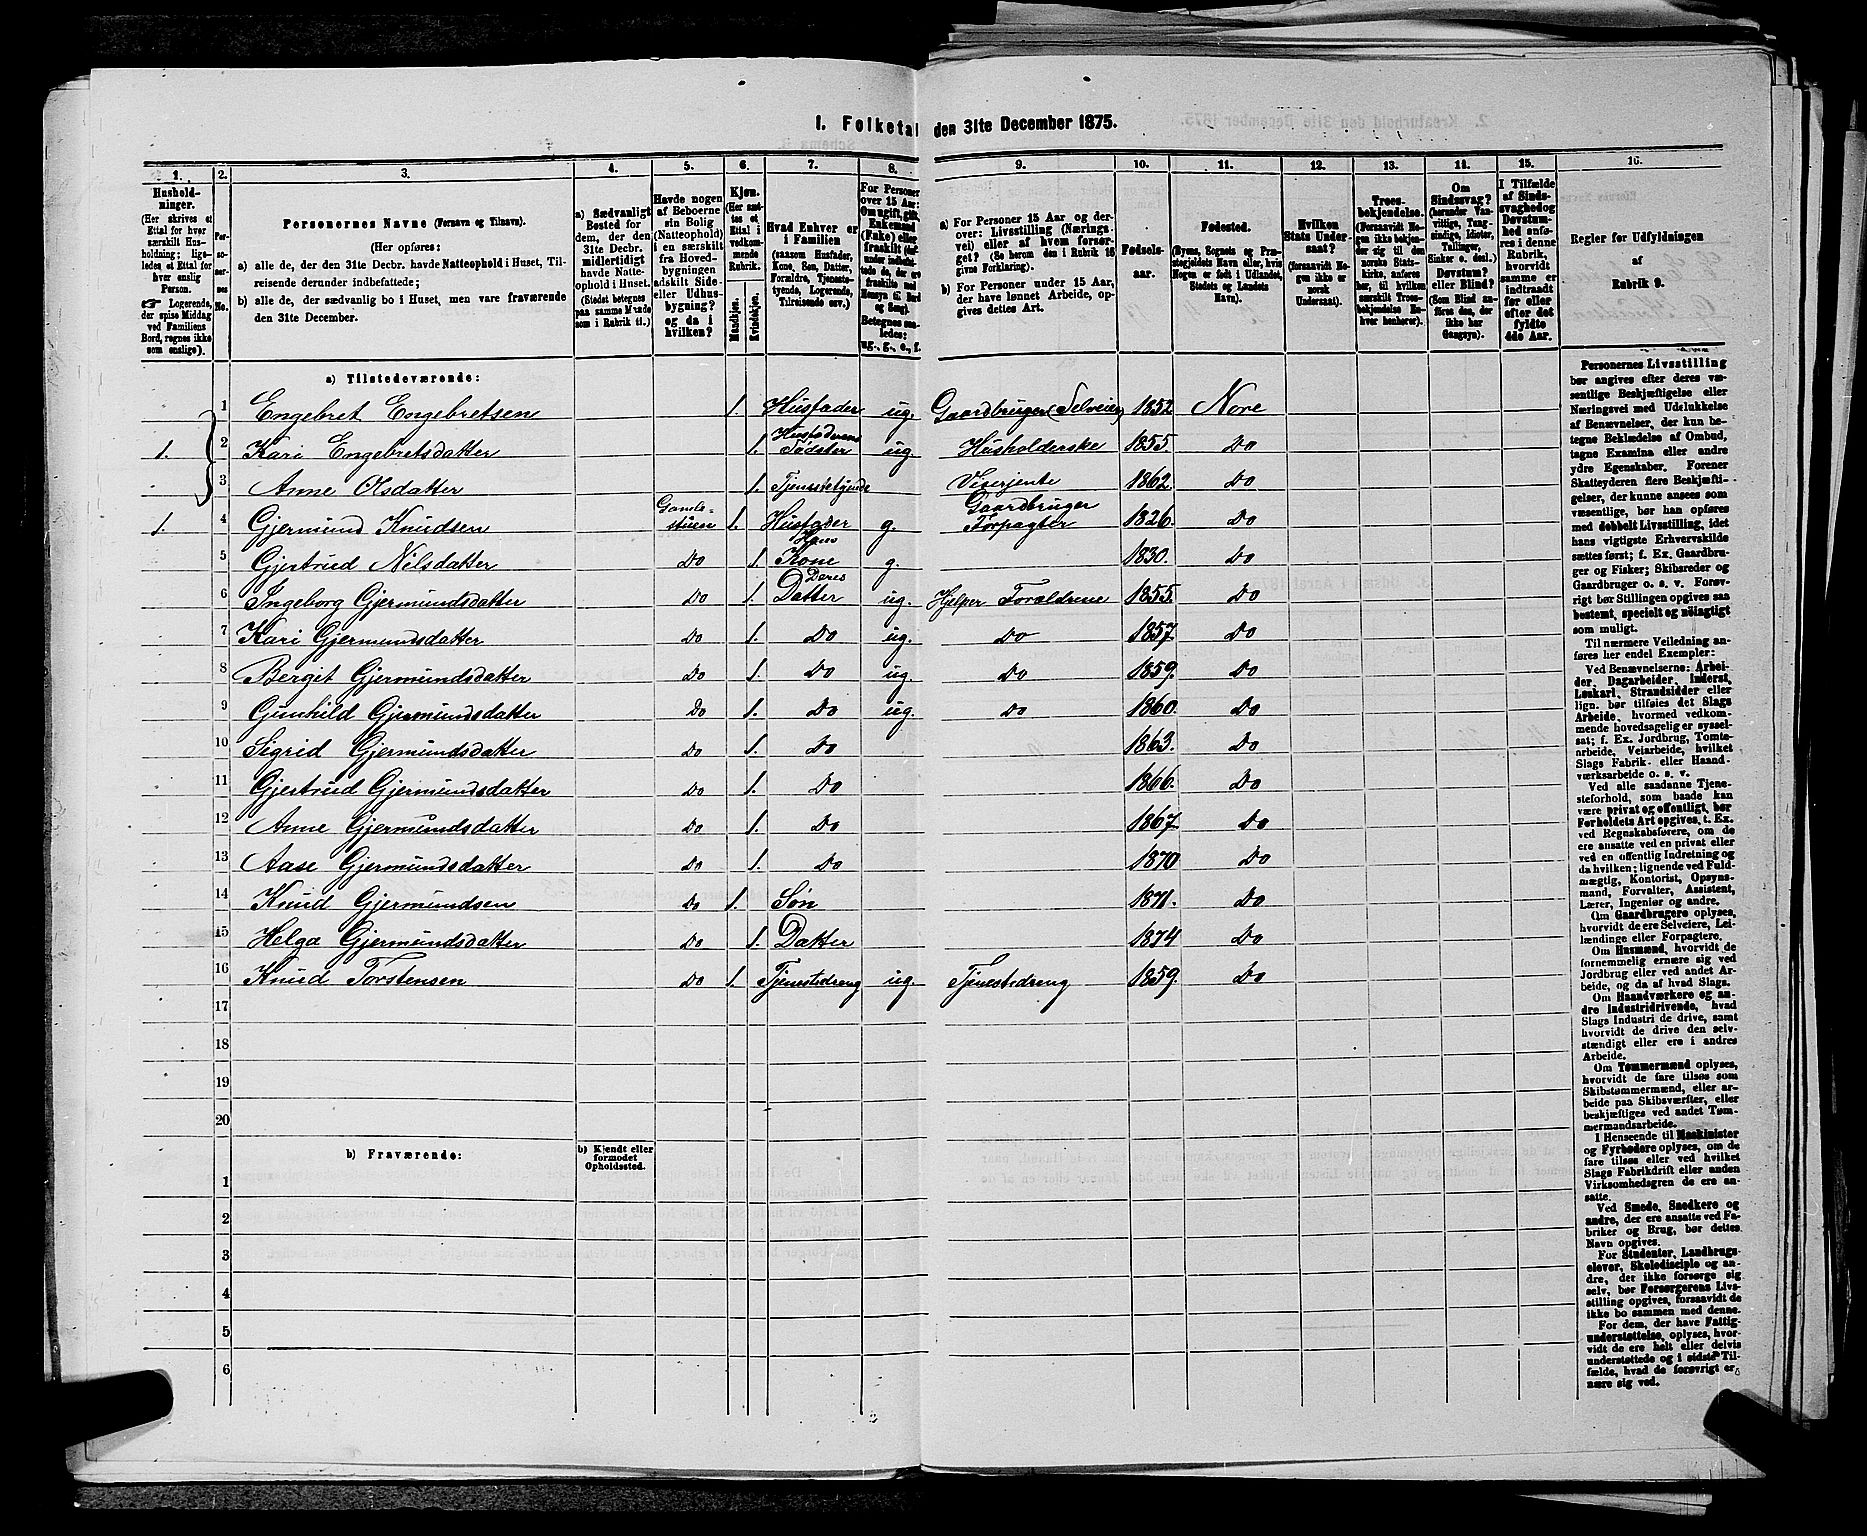 I. Folketal den 31te December 1875.
1. 2. 3. 4. 5. 6. 7. 8. 9. 10. 11. 12. 13. 14. 15. 16.
Husholdninger. (Her skrives et Ettal for hver særskilt Husholdning; ligeledes et Ettal for hver enslig Person. ☞ Logerende, der spise Middag ved Familiens Bord, regnes ikke som enslige).
Personernes No.
Personernes Navne (Fornavn og Tilnavn).
(Her opføres:
a) alle de, der den 31te Decbr. havde Natteophold i Huset, Tilreisende derunder indbefattede;
b) alle de, der sædvanlig bo i Huset, men vare fraværende den 31te December.
a) Sædvanligt Bosted for dem, der den 31te Decbr. midlertidigt havde Natteophold i Huset. (Stedet betegnes paa samme Maade som i Rubrik 11.)
Havde nogen af Beboerne sin Bolig (Natteophold) i en særskilt fra Hovedbygningen adskilt Side- eller Udhusbygning? og da i hvilken?
Kjøn. (Her sættes et Ettal i vedkommende Rubrik.
Mandkjøn. Kvindekjøn.
Hvad Enhver er i Familien (saasom Husfader, Kone, Søn, Datter, Forældre, Tjenestetyende, Logerende, Tilreisende osv.)
For Personer over 15 Aar: Om ugift, gift, Enkemand (Enke) eller fraskilt Betegnes saaledes: ug., g., e., f.
a) For Personer 15 Aar og derover: Livsstilling (Næringsvei) eller af hvem forsørget? (Se herom den i Rubrik 16 givne Forklaring).
b) For Personer under 15 Aar, der have lønnet Arbeide, opgives dettes Art.
Fødselsaar.
Fødested. (Byens, Sognets og Præstegjeldets Navn eller, hvis Nogen er født i Udlandet, Stedets og Landets Navn).
Hvilken Stats Undersaat? (forsaavidt Nogen ikke er norsk Undersaat).
Troesbekjendelse. (Forsaavidt Nogen ikke bekjender sig til den norske Statskirke, anføres her, til hvilken særskilt Troesbekjendelse Enhver henhører).
Om Sindssvag? (herunder Vanvittige, Tungsindige, Idioter, Tullinger, Sinker o. desl.) Døvstum? eller Blind? (Som Blind anføres den, der ikke har Gangsyn).
I Tilfælde af Sindssvaghed og Døvstumhed anføres i denne Rubrik, hvorvidt samme er indtraadt før eller efter det fyldte 4de Aar.
Regler for Udfyldningen af Rubrik 9.
a) Tilstedeværende:
1 Engebret Engebretsen 1. Husfader ug. Gaardbruger (Selveier) 1852 Nore
1. 2 Kari Engebretsdatter 1. Husfaderens Tødster ug Husholderske 1855. Do
3 Anne Olsdatter 1. Tjenestetyende Viserjente 1862. Do
1. 4 Gjermund Knudsen Gamlestuen 1. Husfader g. Gaardbruger Forpagter 1826. Do
5 Gjertrud Nilsdatter Do 1. Hans Kone g. 1830. Do
6 Ingeborg Gjermundsdatter Do 1. Deres Datter ug. Hjelper Forældrene 1855. Do
7 Kari Gjermundsdatter Do 1. Do ug. Do 1857. Do
8 Bergit Gjermundsdatter Do 1. Do ug. Do 1859. Do
9 Gunhild Gjermundsdatter Do 1. Do ug. Do 1860. Do
10 Sigrid Gjermundsdatter Do 1. Do 1863. Do
11 Gjertrud Gjermundsdatter Do 1. Do 1866. Do
12 Anne Gjermundsdatter Do 1. Do 1867 Do
13 Aase Gjermundsdatter Do 1. Do 1870 Do
14 Knud Gjermundsen Do 1. Søn 1871. Do
15 Helga Gjermundsdatter Do 1. Datter 1874 Do
16 Knud Torstensen Do 1. Tjenestedreng ug. Tjenestedreng 1859. Do
17
18
19
20
b) Fraværende: b) Kjendt eller formodet Opholdssted.
1
2
3
4
5
6
Personernes Livsstilling
bør angives efter deres væ-
sentlige Beskjæftigelse eller
Næringsvei med Udelukkelse
af Benævnelser, der kun be-
tegne Beklædelse af Ombud,
tagne Examina eller andre
ydre Egenskaber. Forener
Skatteyderen flere Beskjæfti-
gelser, der kunne ansees som
væsentlige, bør han opføres
med dobbelt Livsstilling, idet
hans vigtigste Erhvervskilde
sættes først; f. Ex. Gaardbru-
ger og Fisker; Skibsreder og
Gaardbruger o. s. v. Forøv-
rigt bør Stillingen opgives saa
bestemt, specielt og nøiagtigt
som muligt.
Til nærmere Veiledning an-
føres her endel Exempler:
Ved Benævnelserne: Arbei-
der, Dagarbeider, Inderst,
Løskarl, Strandsidder eller
lign. bør tilføies det Slags
Arbeide, hvormed vedkom-
mende hovedsagelig er syssel-
sat; f. Ex. Jordbrug, Tomte-
arbeide, Veiarbeide, hvilket
Slags Fabrik- eller Haand-
værksarbeide o. s. v.
Ved alle saadanne Tjene-
steforhold, som baade kan
være privat og offentligt, bør
Forholdets Art opgives, t. Ex.
ved Regnskabsførere, om de
ere ansatte ved en privat eller
ved en offentlig Indretning og
da hvilken; lignende ved Fuld-
mægtig, Kontorist, Opsyns-
mand, Forvalter, Assistent,
Lærer, Ingeniør og andre.
Om Gaardbrugere oplyses,
hvorvidt de ere Selveiere, Lei-
lændinge eller Forpagtere.
Om Husmænd, hvorvidt de
fornemmelig ernære sig ved
Jordbrug eller ved andet Ar-
beide, og da af hvad Slags.
Om Haandværkere og an-
dre Industridrivende, hvad
Slags Industri de drive, samt
hvorvidt de drive den selv-
stændigt eller ere i andres
Arbeide.
Om Tømmermænd oplyses,
hvorvidt de fare tilsøs som
Skibstømmermænd, eller ar-
beide paa Skibsværfter, eller
beskjæftiges ved andet Tøm-
mermandsarbeide.
I Henseende til Maskinister
og Fyrbødere oplyses, om de
fare tilsøs eller ved hvilket
Slags Fabrikdrift eller anden
Virksomhedsgren de ere an-
satte.
Ved Smede, Snedkere og
andre, der ere ansatte ved Fa-
briker og Brug, bør dettes
Navn opgives.
For Studenter, Landbrugs-
elever, Skoledisciple og an-
dre, der ikke forsørge sig
selv, bør Forsørgerens Livs-
stilling opgives, forsaavidt de
ikke bo sammen med denne.
For dem, der have Fattig-
understøttelse, oplyses, hvor-
vidt de ere helt eller delvis
understøttede og i sidste Til-
fælde, hvad de forøvrigt er-
nære sig ved.